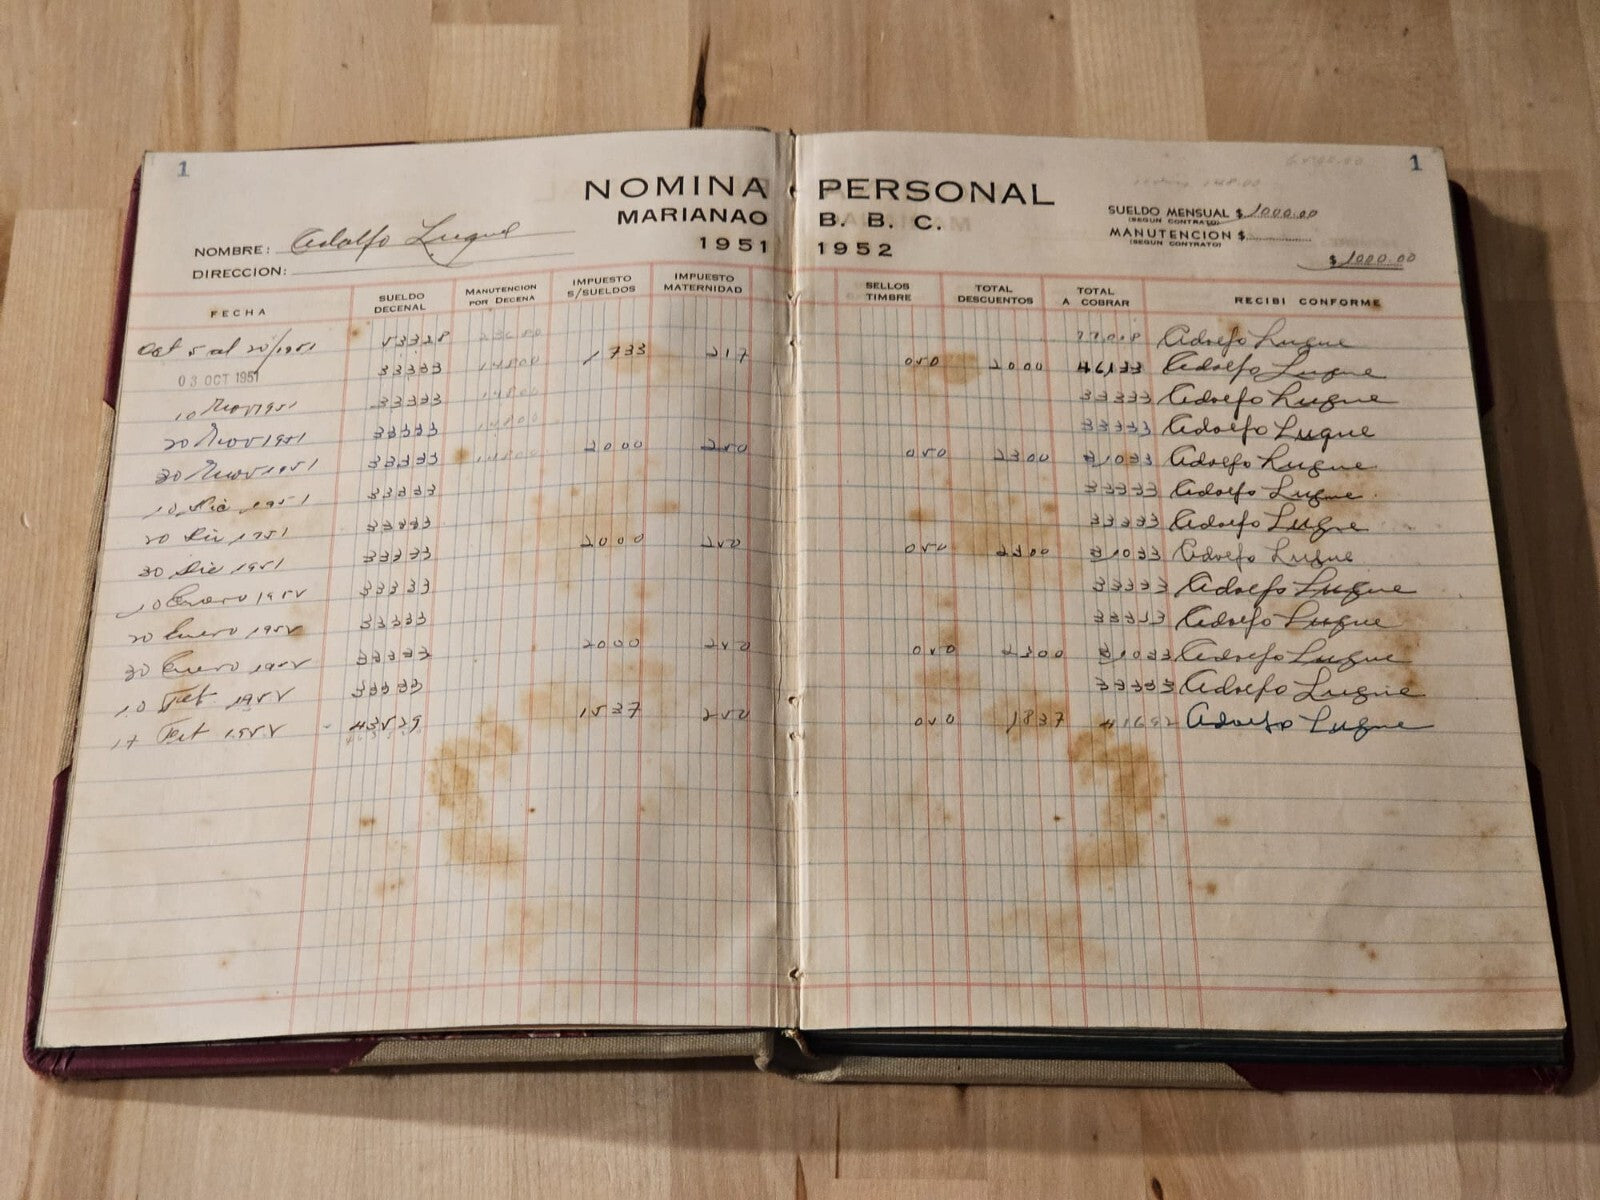 1 1
NOMINA PERSONAL
MARIANAO B. B. C.
1951 1952
NOMBRE: Adolfo Luque
DIRECCION:
SUELDO MENSUAL $ 1000.00
(SEGUN CONTRATO)
MANUTENCION $
(SEGUN CONTRATO)
$ 1000.00
FECHA SUELDO DECENAL MANUTENCION POR DECENA IMPUESTO S/SUELDOS IMPUESTO MATERNIDAD SELLOS TIMBRE TOTAL DESCUENTOS TOTAL A COBRAR RECIBI CONFORME
Oct 5 al 20/1951 533 28 Adolfo Luque
03 OCT 1951 333 33 17 33 2 17 0 50 20 00 461 33 Adolfo Luque
10 Nov 1951 333 33 333 33 Adolfo Luque
20 Nov 1951 333 33 333 33 Adolfo Luque
30 Nov 1951 333 33 20 00 2 50 0 50 23 00 310 33 Adolfo Luque
10 Dic 1951 333 33 333 33 Adolfo Luque
20 Dic 1951 333 33 333 33 Adolfo Luque
30 Dic 1951 333 33 20 00 2 50 0 50 23 00 310 33 Adolfo Luque
10 Enero 1952 333 33 333 33 Adolfo Luque
20 Enero 1952 333 33 333 33 Adolfo Luque
30 Enero 1952 333 33 20 00 2 50 0 50 23 00 310 33 Adolfo Luque
10 Feb 1952 333 33 333 33 Adolfo Luque
17 Feb 1952 435 29 15 37 2 50 0 50 18 37 416 92 Adolfo Luque